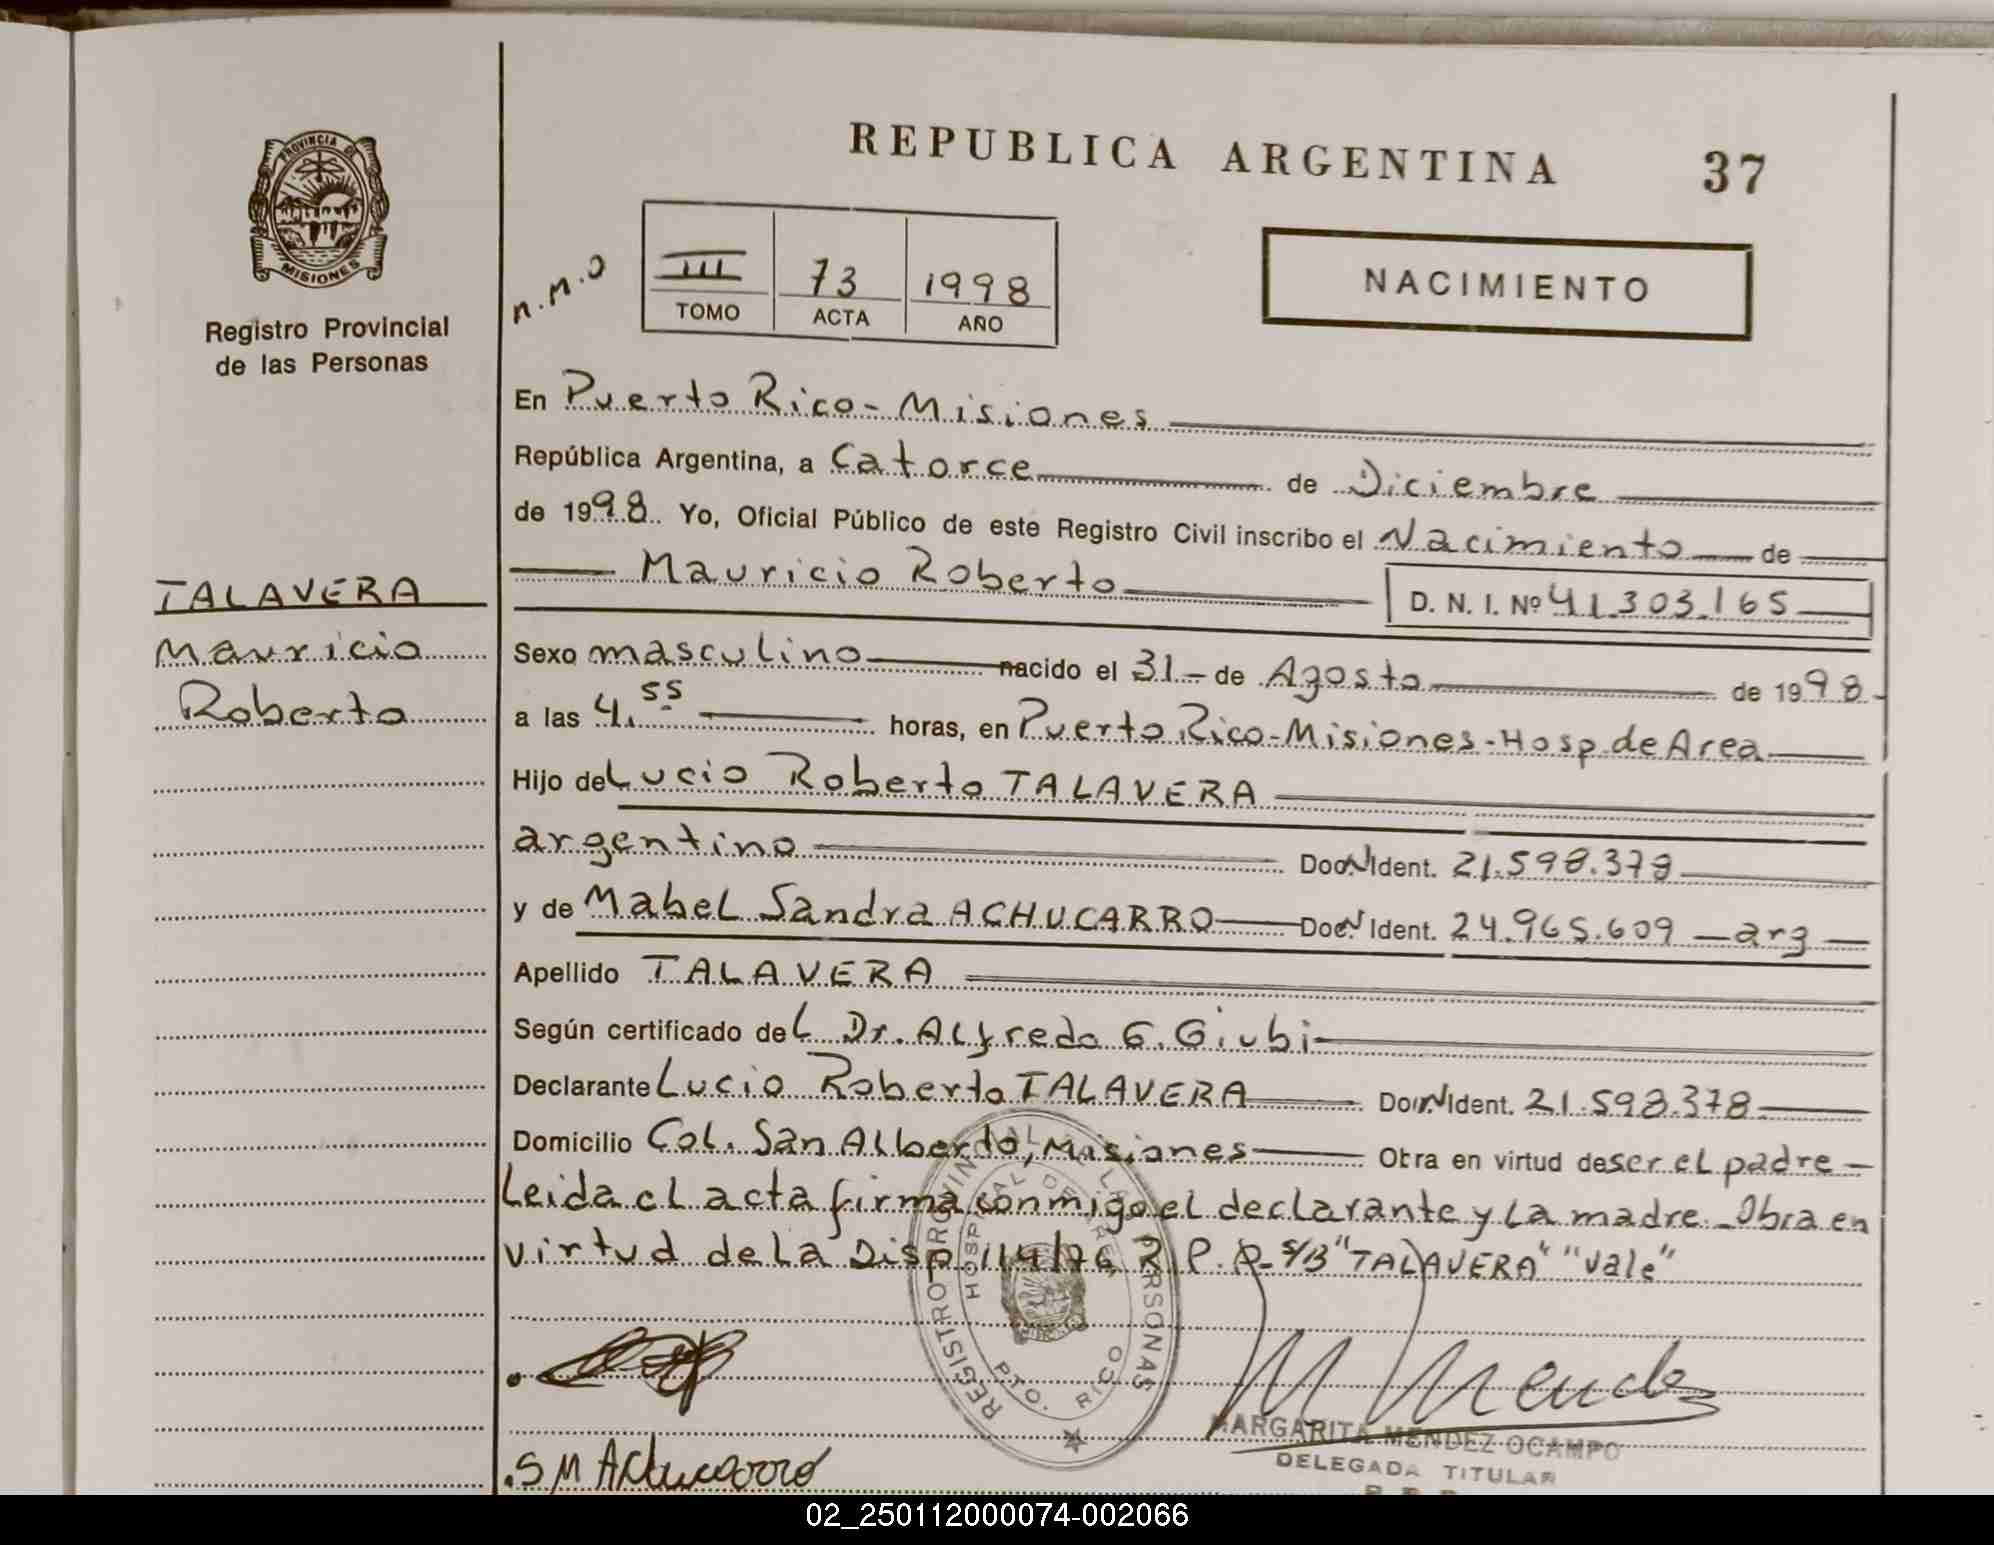 REPUBLICA ARGENTINA 37
PROVINCIA DE
MISIONES
Registro Provincial
de las Personas
n.M.O
III 73 1998
TOMO ACTA AÑO
NACIMIENTO
En Puerto Rico - Misiones
República Argentina, a Catorce de Diciembre
de 1998. Yo, Oficial Público de este Registro Civil inscribo el Nacimiento de
Mauricio Roberto D. N. I. Nº 41.303.165
TALAVERA
Mauricio
Roberto
Sexo masculino nacido el 31 - de Agosto de 1998 -
a las 4.55 horas, en Puerto Rico - Misiones - Hosp. de Area
Hijo de Lucio Roberto TALAVERA
argentino Doc. N Ident. 21.598.378
y de Mabel Sandra ACHUCARRO Doc. N Ident. 24.965.609 - arg -
Apellido TALAVERA
Según certificado del Dr. Alfredo G. Giubi
Declarante Lucio Roberto TALAVERA Doc. N Ident. 21.598.378
Domicilio Col. San Alberdo, Misiones Obra en virtud de ser el padre -
Leida el acta firma conmigo el declarante y la madre - Obra en
virtud de la Disp. 114/76 R.P.P - s/B "TALAVERA" "Vale"
REGISTRO PROVINCIAL DE LAS PERSONAS
HOSPITAL DE AREA
PTO. RICO
M Mendez
MARGARITA MENDEZ OCAMPO
DELEGADA TITULAR
S M Achucarro
02_250112000074-002066